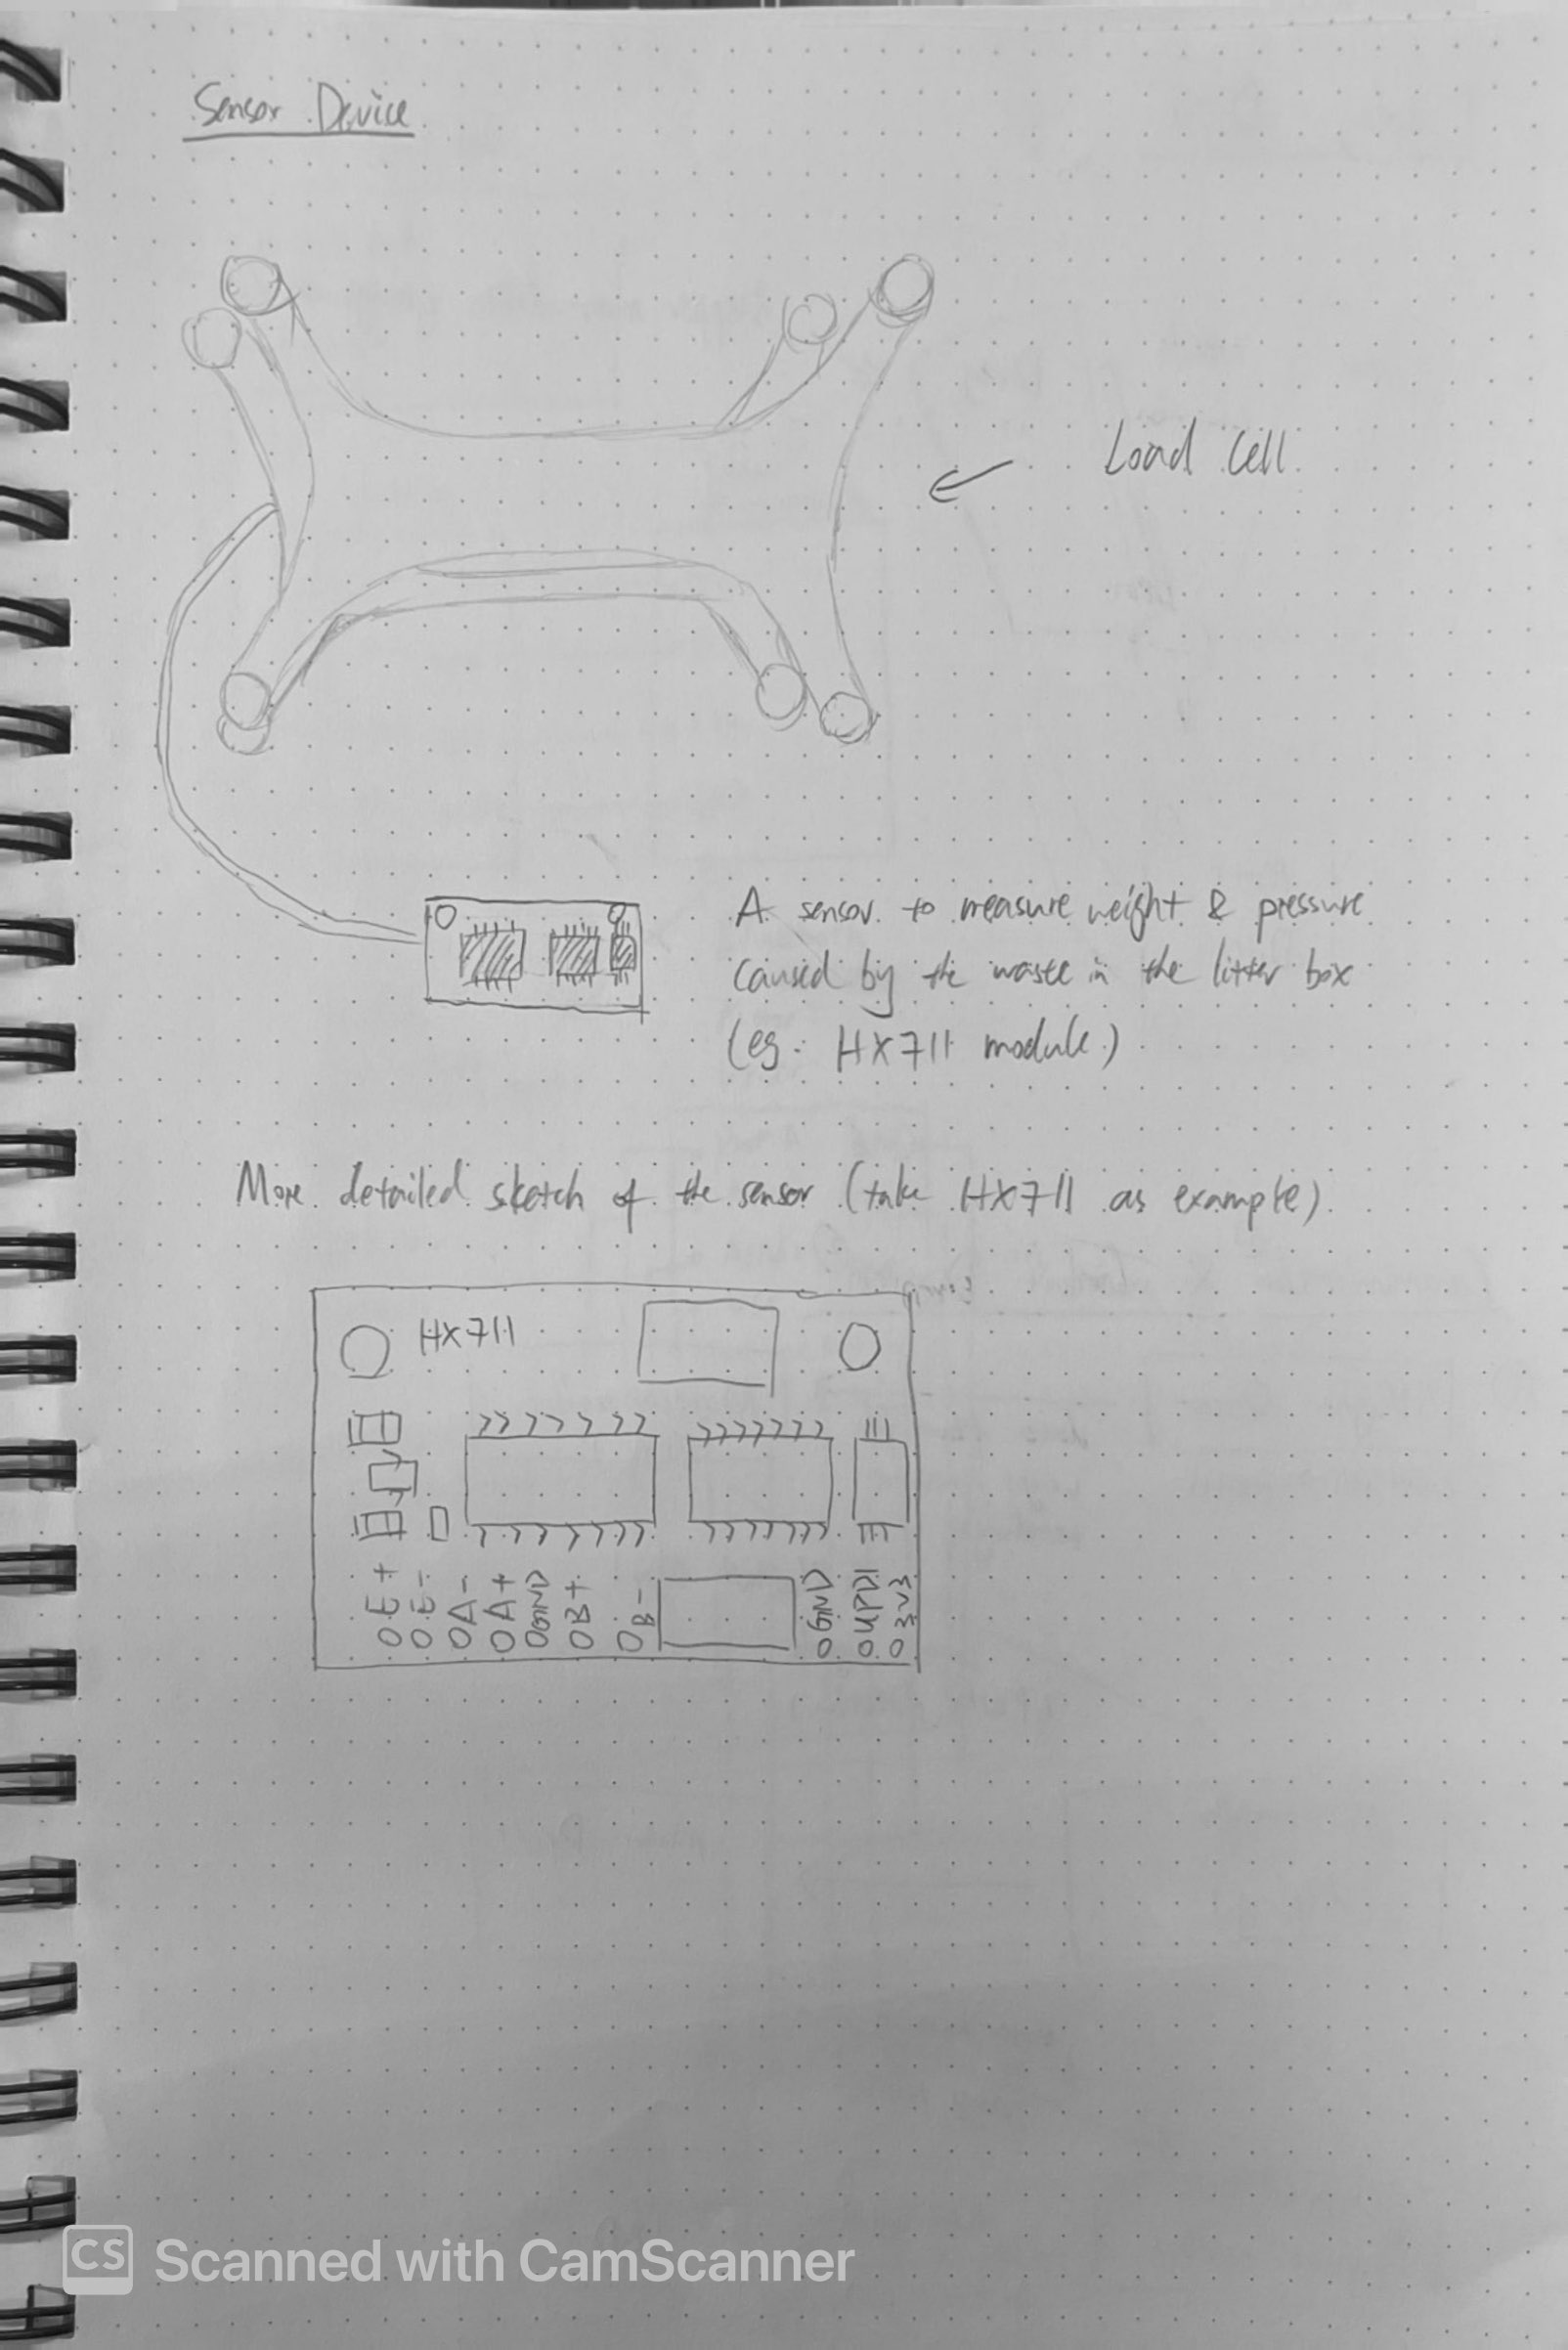 Sensor Device
Load Cell
A sensor to measure weight & pressure
caused by the waste in the litter box
(eg. HX711 module)
More detailed sketch of the sensor (take HX711 as example)
HX711
E+
E-
A-
A+
GND
B+
B-
GND
UPDI
3V3
CS Scanned with CamScanner